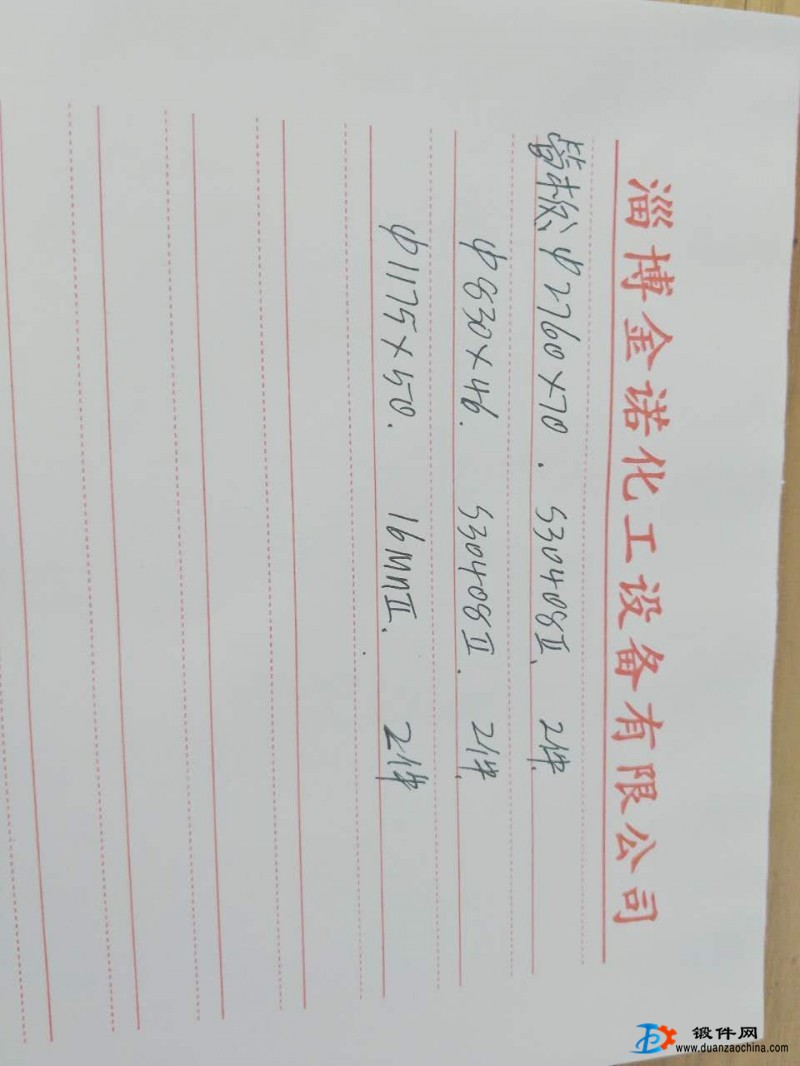 淄博金诺化工设备有限公司
管板 φ2760×70. S30408Ⅱ、2件.
φ830×46. S30408Ⅱ. 2件.
φ1175×50. 16MnⅡ. 2件
锻件网
www.duanzaochina.com